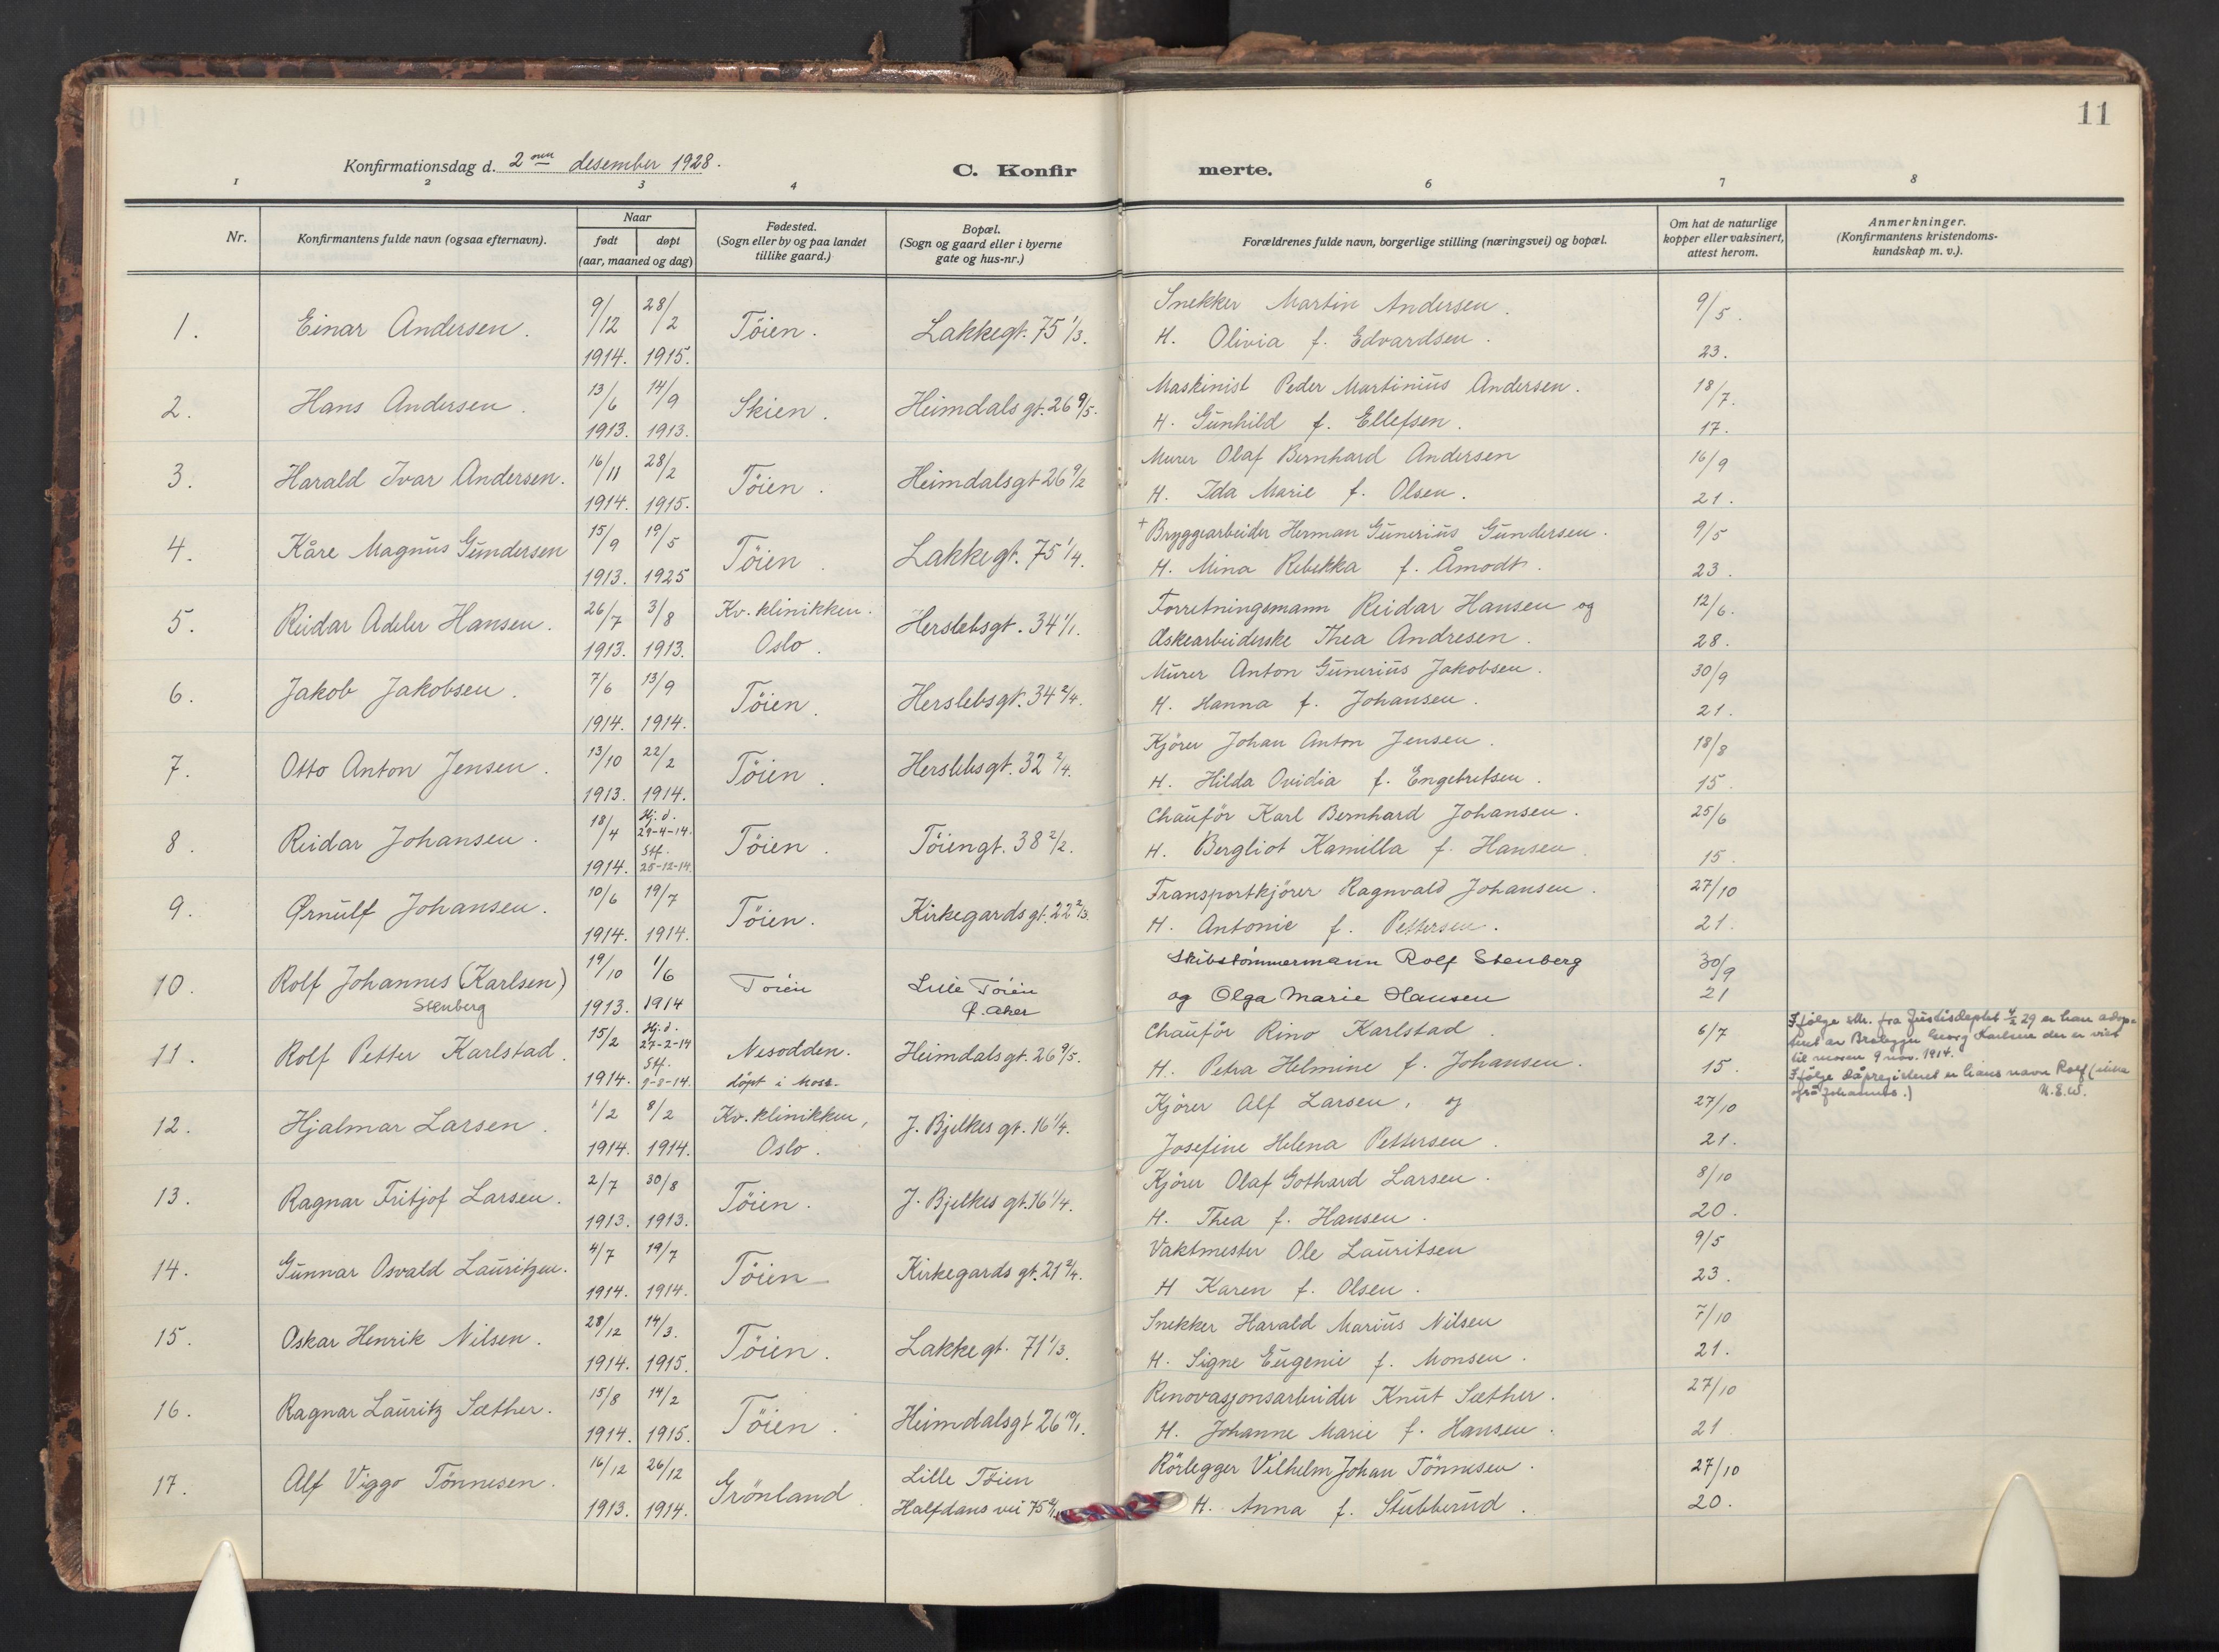 11
Konfirmationsdag d. 2nen desember 1928.
C. Konfirmerte.
1 2 3 4 6 7 8
Nr.
Konfirmantens fulde navn (ogsaa efternavn).
Naar
født døpt
(aar, maaned og dag)
Fødested.
(Sogn eller by og paa landet
tillike gaard.)
Bopæl.
(Sogn og gaard eller i byerne
gate og hus-nr.)
Forældrenes fulde navn, borgerlige stilling (næringsvei) og bopæl.
Om hat de naturlige
kopper eller vaksinert,
attest herom.
Anmerkninger.
(Konfirmantens kristendoms-
kundskap m. v.).
1. Einar Andersen. 9/12 1914. 28/2 1915. Töien. Lakkegt. 75 1/3. Snekker Martin Andersen. 9/5.
H. Olivia f. Edvardsen. 23.
2. Hans Andersen. 13/6 1913. 14/9 1913. Skien. Heimdalsgt. 26 9/5. Maskinist Peder Martinius Andersen. 18/7.
H. Gunhild f. Ellefsen. 17.
3. Harald Ivar Andersen. 16/11 1914. 28/2 1915. Töien. Heimdalsgt 26 9/2 Murer Olaf Bernhard Andersen 16/9
H. Ida Marie f. Olsen. 21.
4. Kåre Magnus Gundersen 15/9 1913. 19/5 1925 Töien. Lakkegt. 75 1/4. + Bryggearbeider Herman Gunerius Gundersen. 9/5
H. Mina Rebekka f. Åmodt. 23.
5. Reidar Adeler Hansen. 26/7 1913. 3/8 1913. Kv. klinikken. Oslo. Herslebsgt. 34 1/1. Forretningsmann Reidar Hansen og 12/6.
Æskearbeiderske Thea Andresen. 28.
6. Jakob Jakobsen. 7/6 1914. 13/9 1914. Töien. Herslebsgt. 34 2/4. Murer Anton Gunerius Jakobsen. 30/9
H. Hanna f. Johansen. 21.
7. Otto Anton Jensen. 13/10 1913. 22/2 1914. Töien. Herslebsgt. 32 2/4. Kjörer Johan Anton Jensen. 18/8
H. Hilda Ovidia f. Engebretsen. 15.
8. Reidar Johansen. 18/4 1914. Hj.d. 29-4-14. Stf. 25-12-14. Töien. Töiengt. 38 2/2. Chauför Karl Bernhard Johansen. 25/6
H. Bergliot Kamilla f. Hansen. 15.
9. Ørnulf Johansen. 10/6 1914. 19/7 1914. Töien. Kirkegardsgt. 22 2/3. Transportkjörer Ragnvald Johansen. 27/10
H. Antonie f. Pettersen. 21.
10. Rolf Johannes (Karlsen) Stenberg 19/10 1913. 1/6 1914 Töien Lille Töien Ø. Aker Skibstömmermann Rolf Stenberg 30/9
og Olga Marie Hansen 21
Ifölge skr. fra Justisdeptet 4/2 29 er han adop-
tert av Brolegger Georg Karlsen der er viet
til moren 9 nov. 1914.
Ifölge dåpregisteret er hans navn Rolf (ikke
også Johannes.) N.E.W.
11. Rolf Petter Karlstad. 15/2 1914. Hj.d. 27-2-14 Stf. 9-8-14. Nesodden. döpt i Moss. Heimdalsgt. 26 9/5. Chauför Rino Karlstad. 6/7
H. Petra Helmine f. Johansen. 15.
12. Hjalmar Larsen. 1/2 1914. 8/2 1914. Kv. klinikken, Oslo. J. Bjelkes gt. 16 1/4. Kjörer Alf Larsen, og 27/10
Josefine Helena Pettersen. 21.
13. Ragnar Fritjof Larsen. 2/7 1913. 30/8 1913. Töien. J. Bjelkes gt. 16 1/4. Kjörer Olaf Gothard Larsen. 8/10
H. Thea f. Hansen. 20.
14. Gunnar Osvald Lauritzen. 4/7 1914. 19/7 1914. Töien Kirkegardsgt. 21 2/4. Vaktmester Ole Lauritsen 9/5
H Karen f. Olsen. 23.
15. Oskar Henrik Nilsen. 28/12 1914. 14/3. 1915. Töien. Lakkegt. 71 1/3. Snekker Harald Marius Nilsen 7/10
H. Signe Eugenie f. Monsen. 21.
16. Ragnar Lauritz Sæther. 15/8 1914. 14/2 1915. Töien. Heimdalsgt 26 10/1. Renovasjonsarbeider Knut Sæther. 27/10
H. Johanne Marie f. Hansen. 21
17. Alf Viggo Tönnesen. 16/12 1913. 26/12 1914. Grönland Lille Töien Halfdans vei 75 Rörlegger Vilhelm Johan Tönnesen. 27/10
H. Anna f. Stubberud. 20.